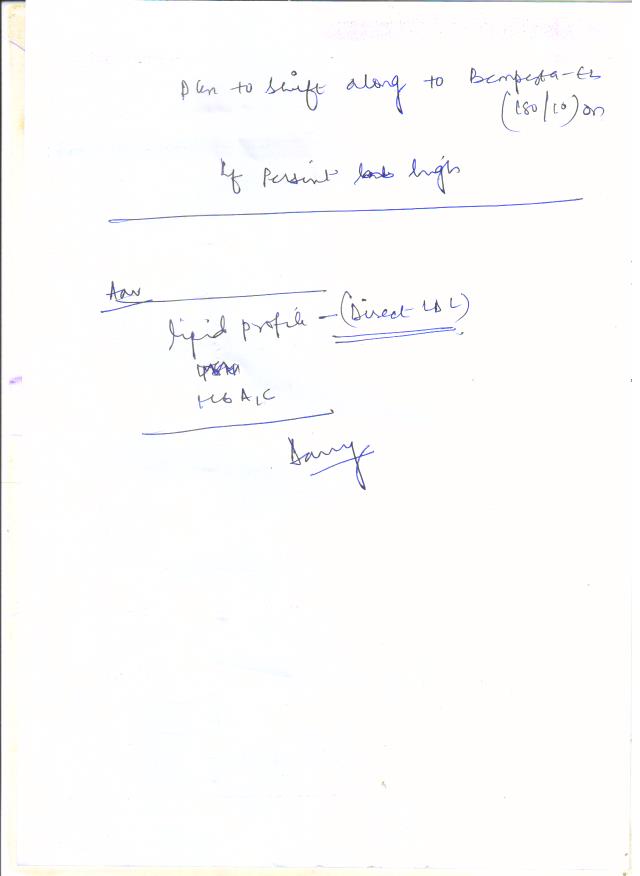 Plan to shift along to Bempesta-EZ
(180/10) on
If Persint high
Adv
lipid profile - (Direct LDL)
HbA1C